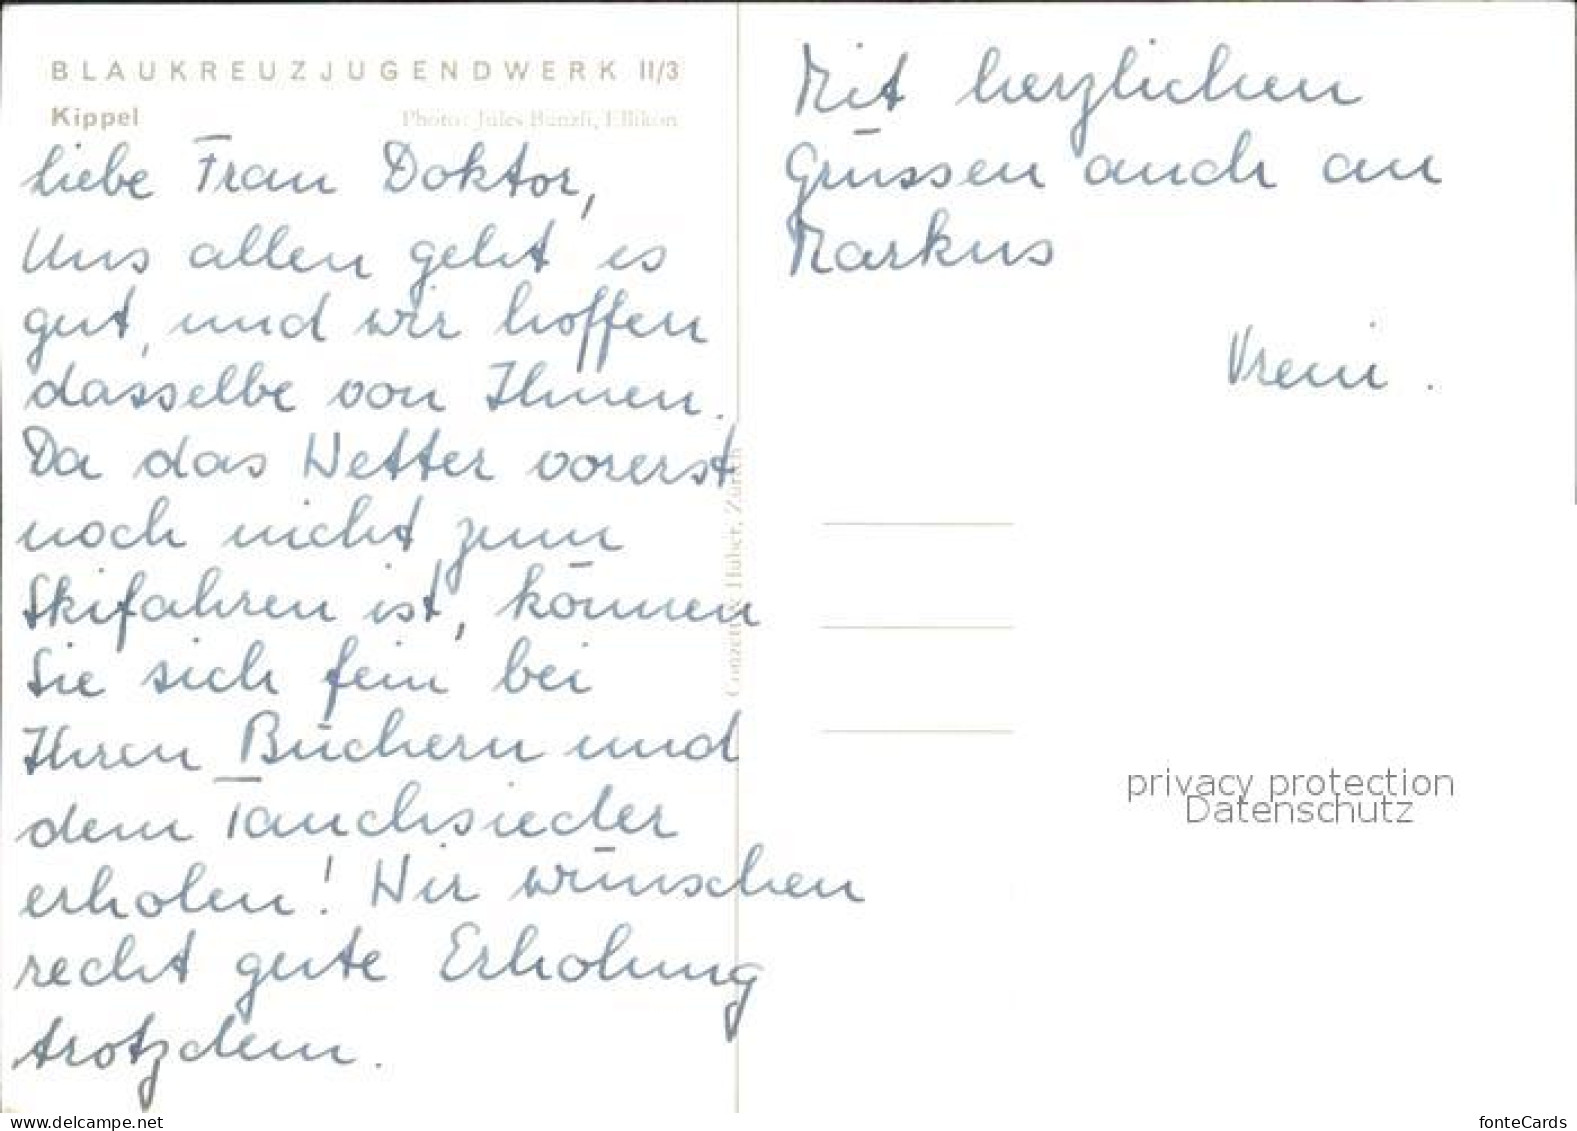 BLAUKREUZJUGENDWERK II/3
Kippel
Photo: Jules Bünzli, Ellikon
Liebe Frau Doktor,
Uns allen geht es
gut, und wir hoffen
dasselbe von Ihnen.
Da das Wetter vorerst
noch nicht zum
Skifahren ist, können
Sie sich fein bei
Ihren Büchern und
dem Tauchsieder
erholen! Wir wünschen
recht gute Erholung
trotzdem.
Conzett & Huber, Zürich
Mit herzlichen
Grüssen auch an
Markus
Vreni.
privacy protection
Datenschutz
www.delcampe.net
fonteCards